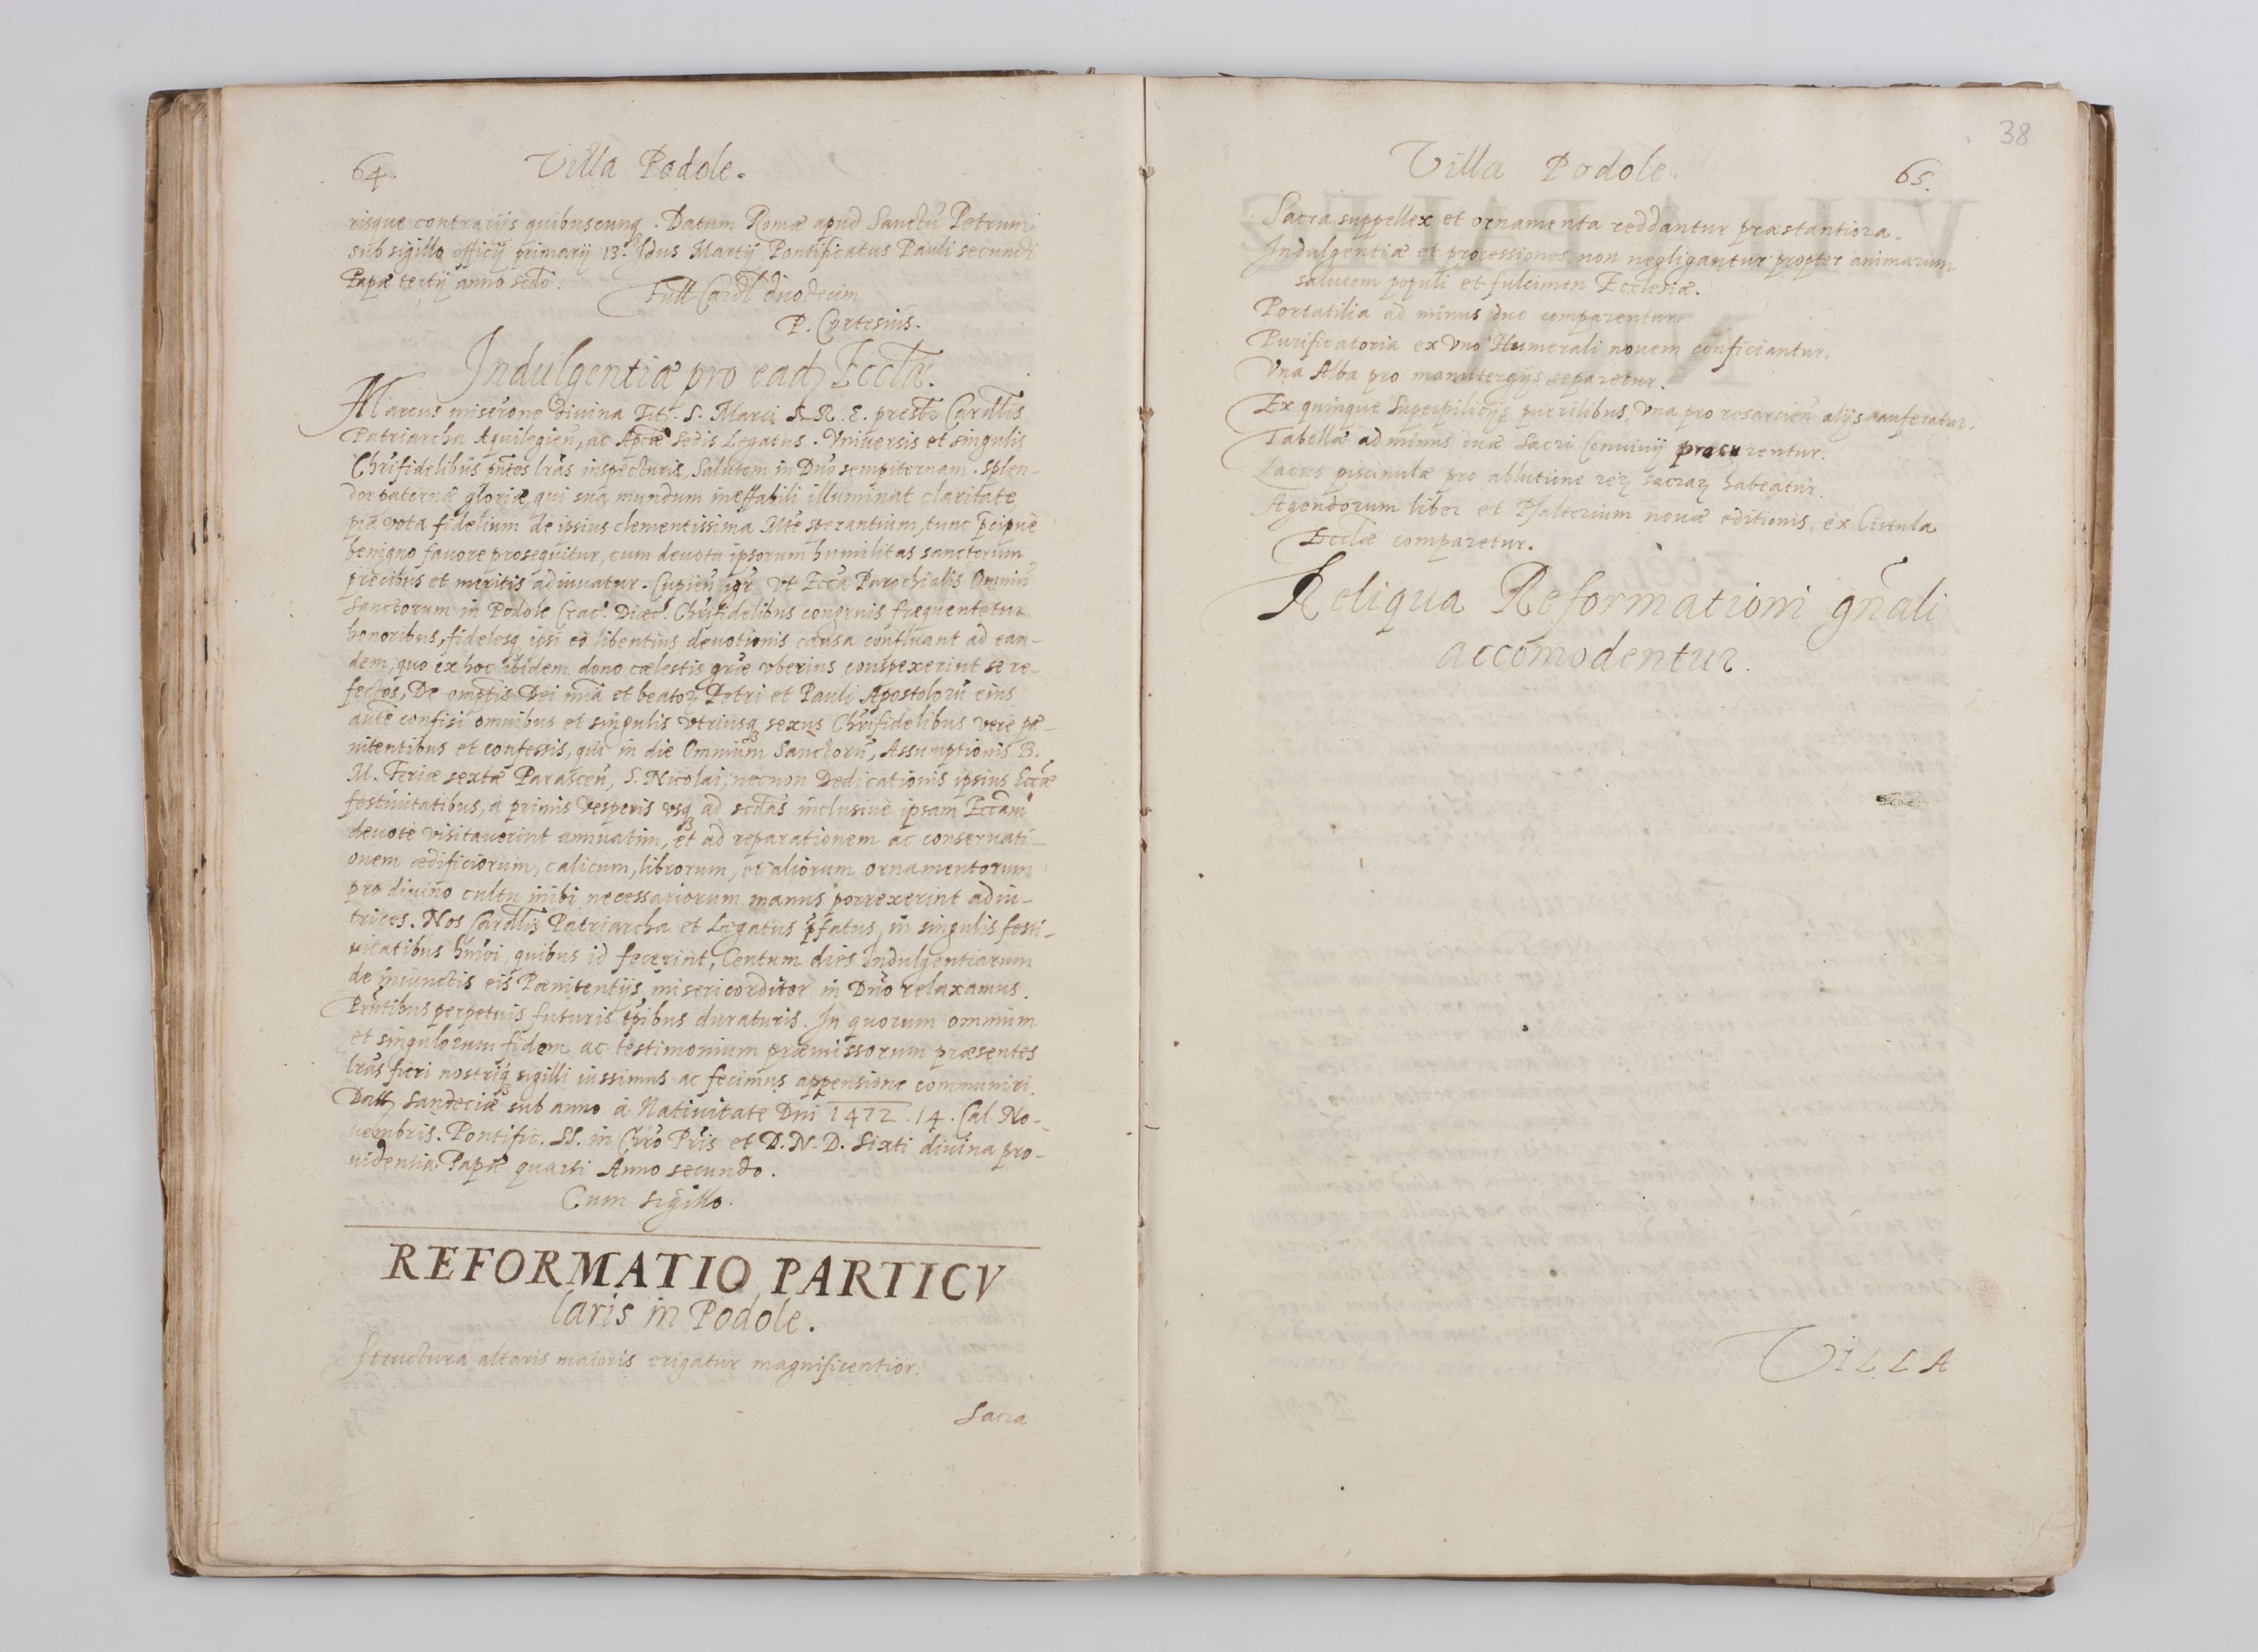 64. Villa Podole.
risque contrarijs quibuscunq. Datum Romæ apud Sanctū Petrum
sub sigillo officij primarij 13. Idus Martij Pontificatus Pauli secundi
Papæ tertij anno scdo.
Cardl duodecim
P. Cortesius.
Indulgentiæ pro ead Eccla.
Marcus miserone diuina Tit. S. Marci S. R. E. presb Cardlis
Patriarcha Aquilegien, ac Aplæ sedis Legatus. Vniuersis et singulis
Chrifidelibus pntes lras inspecturis, Salutem in Dno sempiternam. Splen-
dor paternæ gloriæ, qui sua mundum ineffabili illuminat claritate,
pia vota fidelium de ipsius clementissima Mte sperantium, tunc pcipuè
benigno fauore prosequitur, cum deuota ipsorum humilitas sanctorum
precibus et meritis adiuuatur. Cupien igr vt Ecca Parochialis Omniū
Sanctorum in Podole Crac. Diæc. Chrifidelibus congruis frequentetur
honoribus, fidelesq ipsi eò libentius deuotionis causa confluant ad ean-
dem, quo ex hoc ibidem dono cælestis græ vberius conspexerint se re-
fectos, De omptis Dei mia et beator Petri et Pauli Apostolorū eius
aute confisi omnibus et singulis vtriusq sexus Chrifidelibus verè pæ-
nitentibus et confessis, qui in die Omnium Sanctorū, Assumptionis B.
M. Feriæ sextæ Parascen, S. Nicolai, necnon Dedicationis ipsius Eccæ
festiuitatibus, à primis vesperis vsq ad scdas inclusiuè ipsam Eccam
deuotè visitauerint annuatim, et ad reparationem ac conseruati-
onem ædificiorum, calicum, librorum, et aliorum ornamentorum
pro diuino cultu inibi necessariorum manus porrexerint adiu-
trices. Nos Cardlis Patriarcha et Legatus pfatus, in singulis festi-
uitatibus hmoi, quibus id fecerint, Centum dies indulgentiarum
de iniunctis eis Pænitentijs misericorditer in Dno relaxamus.
Prntibus perpetuis futuris tpibus duraturis. In quorum omnium
et singulorum fidem ac testimonium præmissorum præsentes
lras fieri nostriq sigilli iussimus ac fecimus appensione communiri.
Datt Sandeciæ sub anno à Natiuitate Dni 1472. 14. Cal. No-
uembris. Pontific. SS. in Chro Pris et D. N. D. Sixti diuina pro-
uidentia Papæ quarti Anno secundo.
Cum sigillo.
REFORMATIO PARTICV
laris in Podole.
Structura altaris maioris erigatur magnificentior.
Sacra
38
Villa Podole. 65.
Sacra suppellex et ornamenta reddantur præstantiora.
Indulgentiæ et processiones non negligantur propter animarum
salutem populi et fulcimen Ecclesiæ.
Portatilia ad minus duo comparentur.
Purificatoria ex vno Humerali nouem conficiantur.
Vna Alba pro manutergijs separetur.
Ex quinque Superpilicijs puerilibus, vna pro resarcien alijs auferatur.
Tabellæ ad minus duæ Sacri Conuiuij procurentur.
Lacus piscinulæ pro ablutione rer sacrar habeatur.
Agendorum liber et Psalterium nouæ editionis, ex Cistula
Ecclæ comparetur.
Reliqua Reformationi gnali
accomodentur.
VILLA